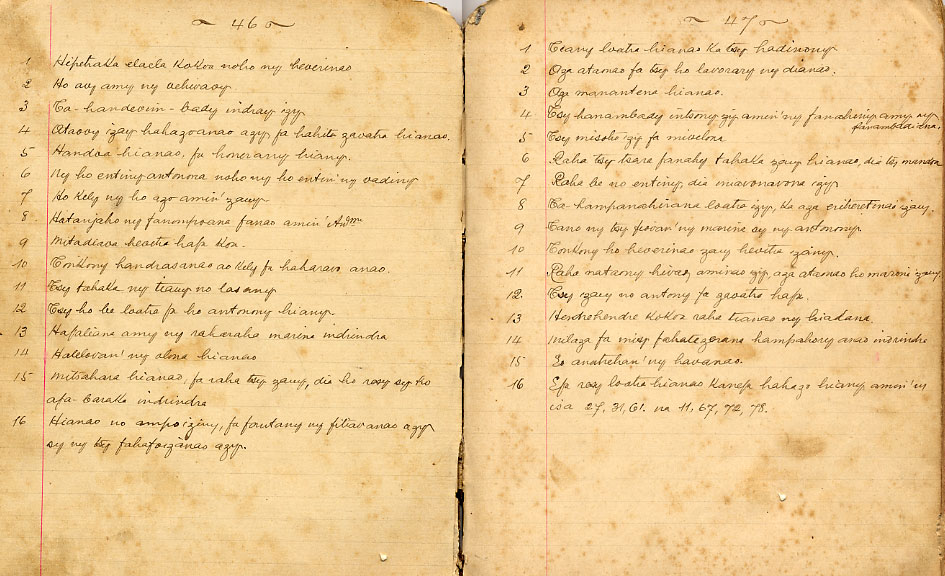 46
1 Hipetraka elaela kokoa noho ny heverinao
2 Ho avy amy ny vehivavy
3 Ta-handevim-bady indray izy
4 Ataovy izay hahazoanao azy fa hahita zavatra hianao.
5 Handoa hianao, fa honerany hiany.
6 Ny ho entiny antonona noho ny ho entin' ny vadiny
7 Ho kely ny ho azo amin' izany
8 Hatanjaho ny fanompoana fanao amin'
9 Mitadiava hevitra hafa koa.
10 Tonkony handrasanao ao kely fa haharavo anao.
11 Tsy tahaka ny teany no lasany
12 Tsy ho be loatra fa ho antonony hiany.
13 Hafaliana amy ny raharaha marina indrindra
14 Halehovan' ny olona hianao
15 Mitsahara hianao, fa raha tsy izany, dia ho rosy sy ho
afa-baraka indrindra
16 Hianao no ampoiziny, fa fantany ny fitiavanao azy
sy ny tsy fahafoizanao azy.
47
1 Teany loatra hianao ka tsy hadinony
2 Aza ataonao fa tsy ho lavorary ny dianao.
3 Aza manantena hianao.
4 Tsy hanambady intsony izy amin' ny fanahiny amy ny
fanambadiana.
5 Tsy misoko izy fa mivelona
6 Raha tsy tsara fanahy tahaka izany hianao, dia tsy
7 Raha be no entiny, dia miavonavona izy
8 Ta-hampanahirana loatra izy, ka aza eritreretinao izany.
9 Tano ny tsy fiovan' ny marina sy ny antonony.
10 Tonkony ho heverinao izany hevitra izany.
11 Raha nataony hivady aminao izy, aza ataonao ho marina izany
12. Tsy izany no antony fa zavatra hafa.
13 Hendrehendre kokoa raha tianao ny hiadana.
14 Milaza fa misy fahatezerana hampahory anao indrindra
15 Io anatrehan' ny havanao.
16 Efa rosy loatra hianao kanefa hahazo hiany amin' ny
isa 27, 31, 61. na 11, 67, 72, 78.